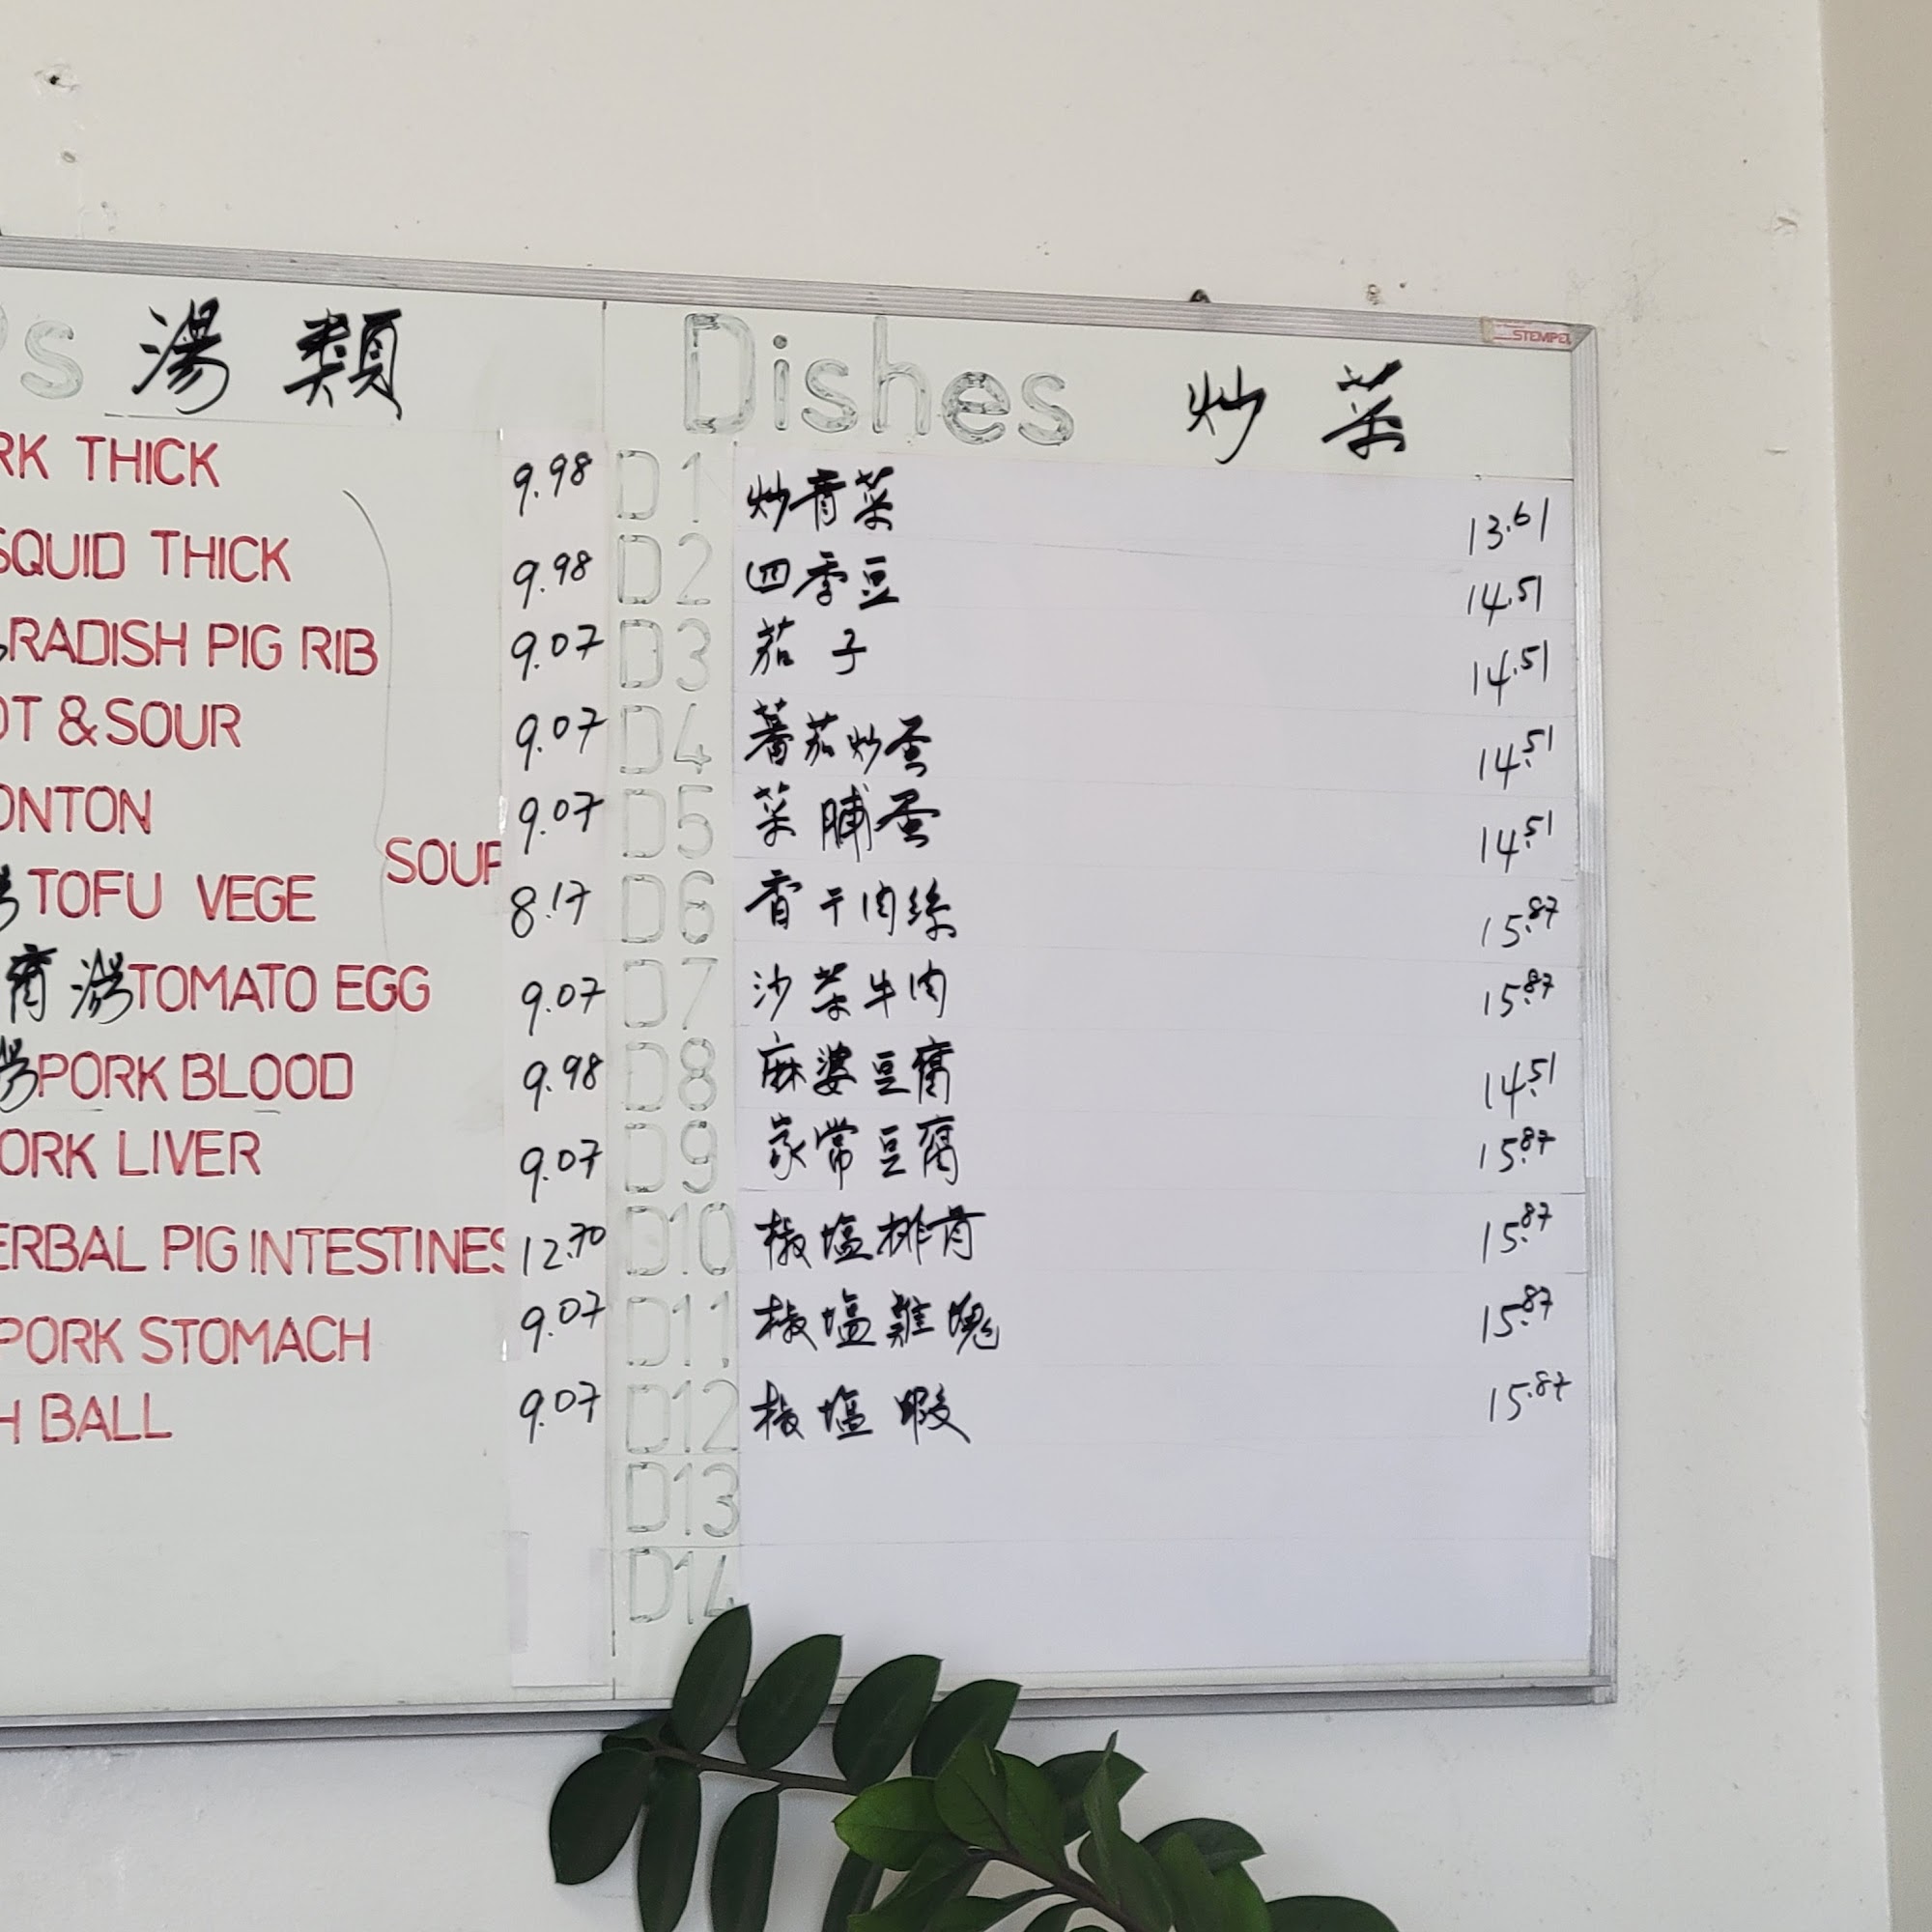 湯類
RK THICK 9.98
SQUID THICK 9.98
RADISH PIG RIB 9.07
OT & SOUR 9.07
ONTON 9.07
SOUP
TOFU VEGE 8.17
湯TOMATO EGG 9.07
湯PORK BLOOD 9.98
ORK LIVER 9.07
ERBAL PIG INTESTINES 12.70
PORK STOMACH 9.07
H BALL 9.07
STEMPEL
Dishes 炒菜
D1 炒青菜 13.61
D2 四季豆 14.51
D3 茄子 14.51
D4 蕃茄炒蛋 14.51
D5 菜脯蛋 14.51
D6 香干肉絲 15.87
D7 沙菜牛肉 15.87
D8 麻婆豆腐 14.51
D9 家常豆腐 15.87
D10 椒塩排骨 15.87
D11 椒塩雞塊 15.87
D12 椒塩蝦 15.87
D13
D14